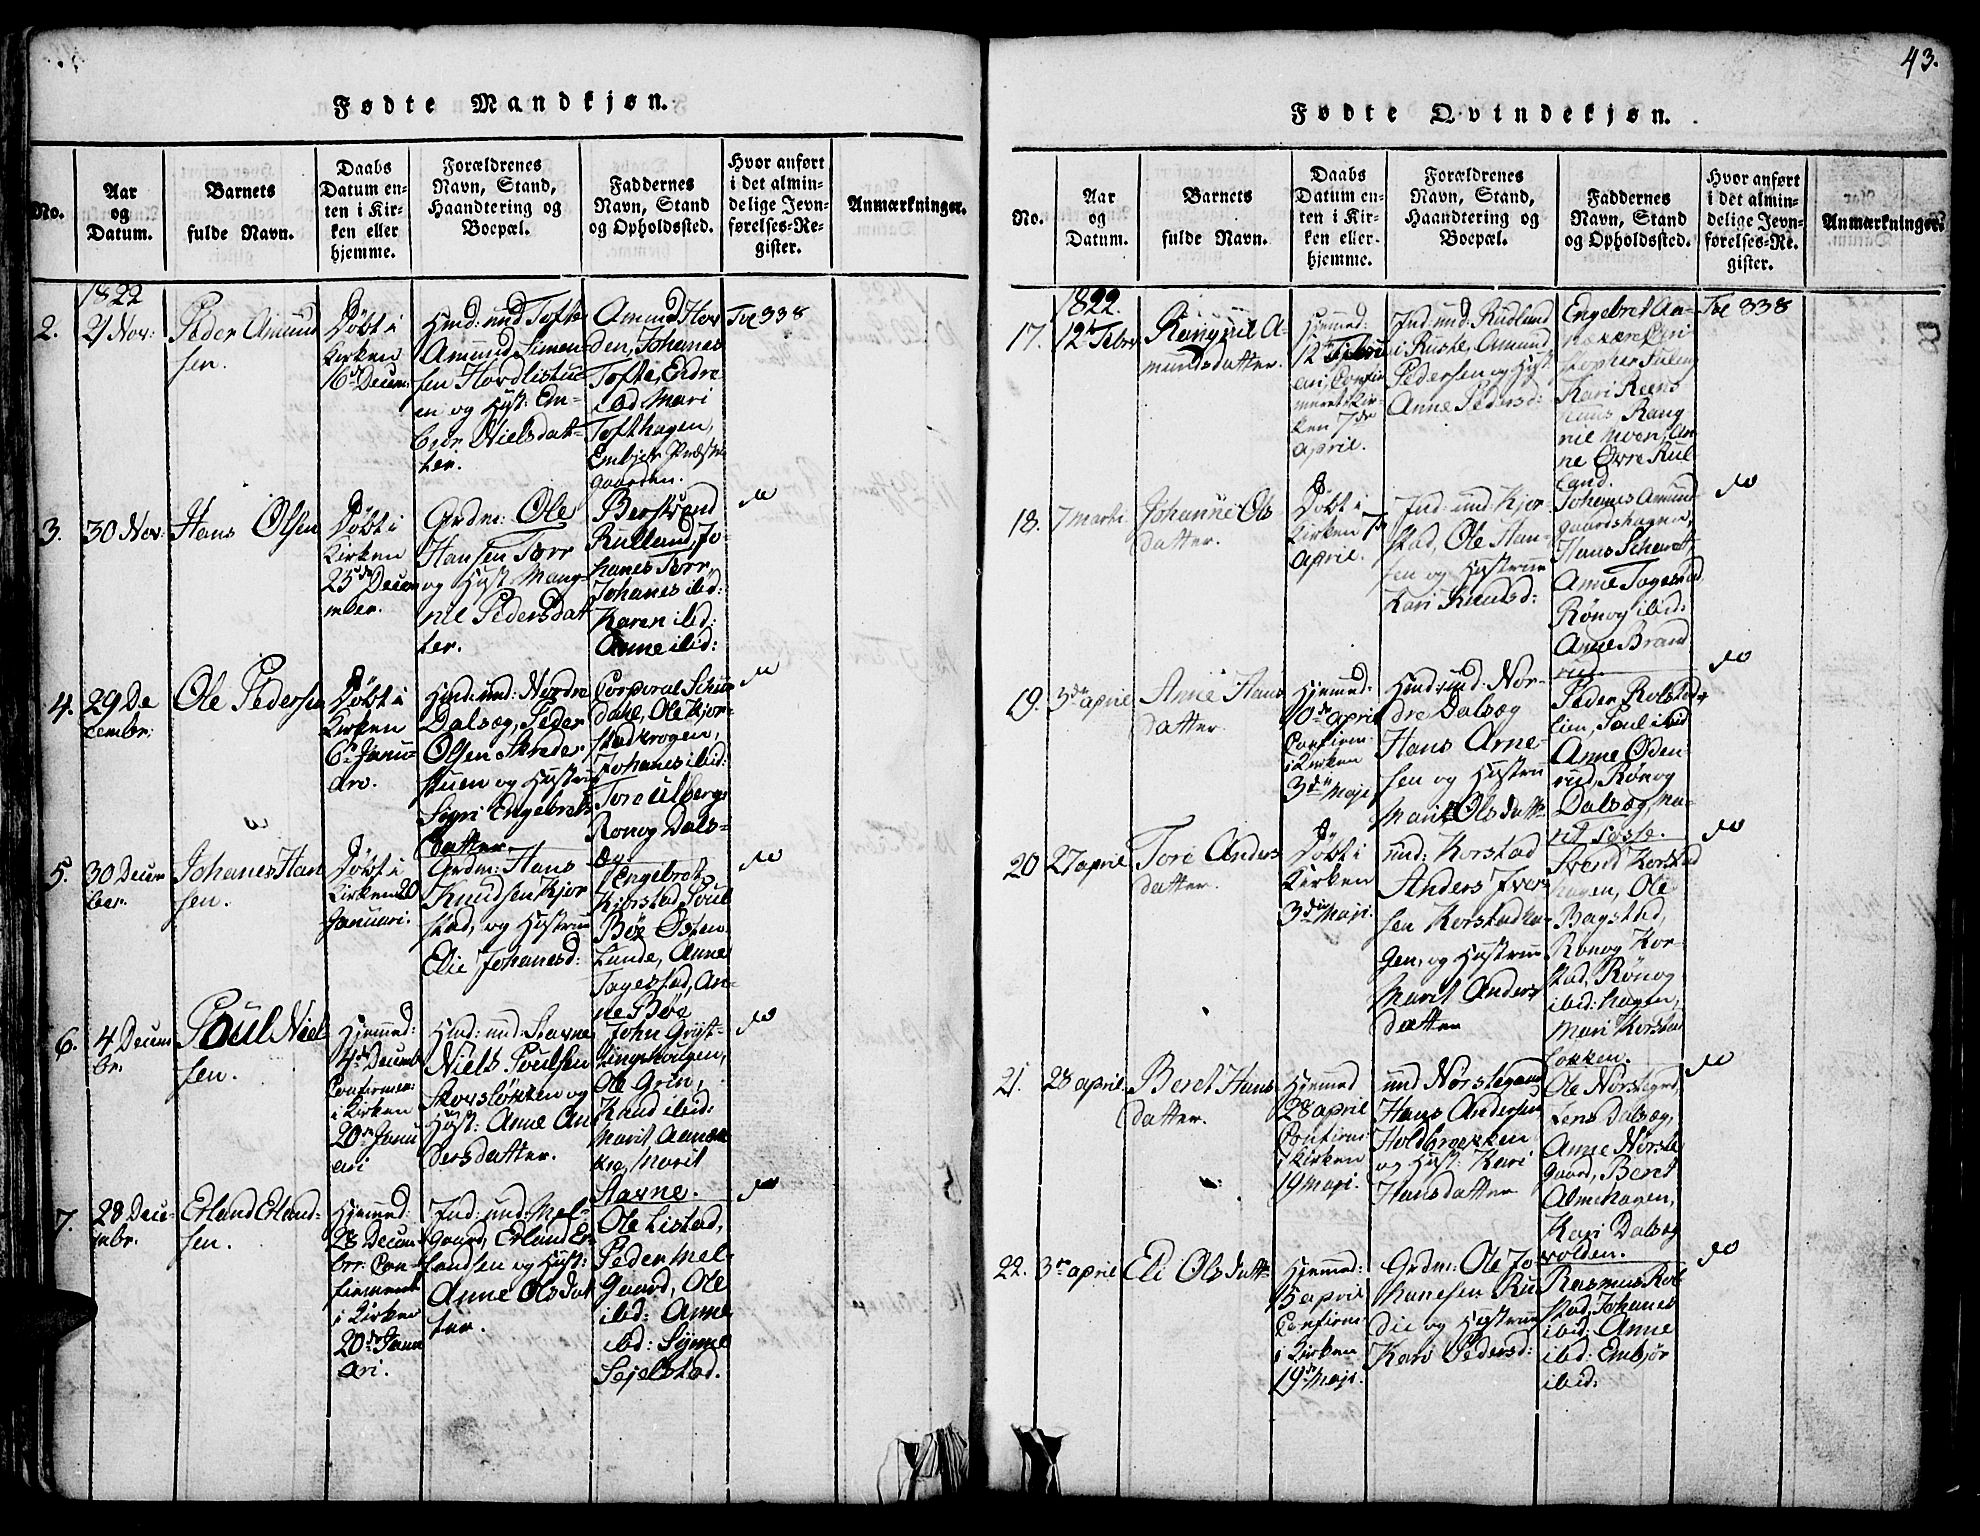 43.
Fødte Mandkjøn.
No.
Aar
og
Datum.
Barnets
fulde Navn.
Daabs
Datum en-
ten i Kir-
ken eller
hjemme.
Forældrenes
Navn, Stand,
Haandtering og
Boepæl.
Faddernes
Navn, Stand
og Opholdssted.
Hvor anført
i det almin-
delige Jevn-
førelses-Re-
gister.
Anmærkninger.
1822
2.
21 Nov:
Peder Amund
sen.
Døbt i
Kirken
16de Decem:
Hmd: und Tofte
Amund Simen-
sen Hovdlistue
en og Hust: Em-
Nielsdat-
ter.
Amund Hov
den, Johanes
Tofte, Endre
ibd Mari
Tofthagen,
Præste
gaarden.
Fol 338
3.
30 Nov:
Hans Olsen
Døbt i
Kirken
25de Decem
mber.
Grdm: Ole
Hansen Tørr
og Hust Mang-
nil Pedersdat
ter.
Rulland, Jo-
hanes Tørr,
Johanes ibid:
Karen ibid:
Anne ibid:
4.
29 De
cembr:
Ole Pedersen
Døbt i
Kirken
6te Janu-
aro.
Hmd: und: Nordre
Dalsæg, Peder
Olsen Skræder
stuen og Hustrue
Sigri Engebrets
datter.
Corporal
Ole Kjør-
stadkrogen,
Johanes ibid:
Tore Ulberg,
Rønog Dals-
æg.
5.
30 Decem
ber.
Johanes Han
sen.
Døbt i
Kirken 20
Januari.
Grdm: Hans
Knudsen Kjør
stad, og Hustrue
Elie Johanesd:
Engebret
Kjørstad, Poul
Bøe Østen
Lunde, Anne
Tagestad, An-
ne Bøe
6.
4 Decem
br.
Poul Niel
sen.
Hjemmed:
4de Decemb
Confirmer:
i Kirken
20de Janu
ari
Hmd: und: Stavne
Niels Poulsen
Skovsløkken og
Hust: Anne An
dersdatter.
John Gryt-
tingshougen,
Ole Grin,
Knud ibid:
Marit
Marit
Stavne.
7.
28 Dece-
mbr.
Erland Erland-
sen.
Hjemmed:
28 Decem-
br: Con-
firmeret
i Kirken
20de Janu
ari.
Ind: und: Mel-
gaard, Erland Er
landsen og Hust:
Anne Olsdat
ter.
Ole Listad,
Peder Mel-
gaard, Ole
ibid: Anne
ibd: Synne
Sejelstad.
Fødte Qvindekjøn.
No.
Aar
og
Datum.
Barnets
fulde Navn.
Daabs
Datum en-
ten i Kir-
ken eller
hjemme.
Forældrenes
Navn, Stand,
Haandtering og
Boepæl.
Faddernes
Navn, Stand
og Opholdssted.
Hvor anført
i det almin-
delige Jevn-
førelses-Re-
gister.
Anmærkninger.
1822.
17.
12te Febr
Rangnil A-
mundsdatter.
Hjemmed:
12te Febru
ari, Confir
meret i Kir-
ken 7de
April.
Ind: und: Rudland
i Ruste, Amund
Pedersen og Hust
Anne Pedersd:
Engebret An-
Kari
Rang
nil Moen, An
ne Øvre Rul
land.
Fol 338
18.
7 Marti
Johanne Ols
datter.
Døbt i
Kirken 7de
April.
Ind: und Kjør
stad, Ole Han-
sen og Hustrue
Kari Knudsd:
Johanes Amund
gaardshagen,
Hans
Anne Tagestad
Rønog ibid:
Anne Brand
rud.
19.
3de April
Anne Hans
datter.
Hjemmed:
April
Confirm:
i Kirken
3die Maji
Hmd: und: Nor-
dre Dalsæg
Hans Arne-
sen og Hustrue
Marit Olsdatt
Peder Rolstad
lien, Poul ibid
Anne Øden
rud, Rønog
Dalsæg, Ma-
rit Losse.
20
27 April
Tore Anders
datter.
Døbt i
Kirken
3die Maji.
und: Korstad
Anders Iver
sen Korstadha-
gen, og Hustrue
Marit Anders
datter
Svend Korstad
hagen, Ole
Bagstad,
Rønog Kor-
stad, Rønog
ibid: hagen,
Mari Korstad
løkken.
21.
28 April
Beret Hans
datter.
Hjemmed
28 April
Confirm:
i Kirken
19 Maji.
und Nørstegaard
Hans Andersen
Holdbrækken
og Hust: Kari
Hansdatter
Ole Nørstegrd,
Jens Dalsæg,
Anne Nørste
gaard, Beret
Almehagen,
Kari Dalsæg
volden.
22.
3de April
Eli Olsdatt
Hjemmed:
5 April
Confirm:
i Kirken
19de Maji.
Grdm: Ole Jo
hanesen Ru
die og Hustrue
Kari Pedersd:
Rasmus Rol
stad, Johanes
ibid: Anne
ibid: Embjør
ibid: